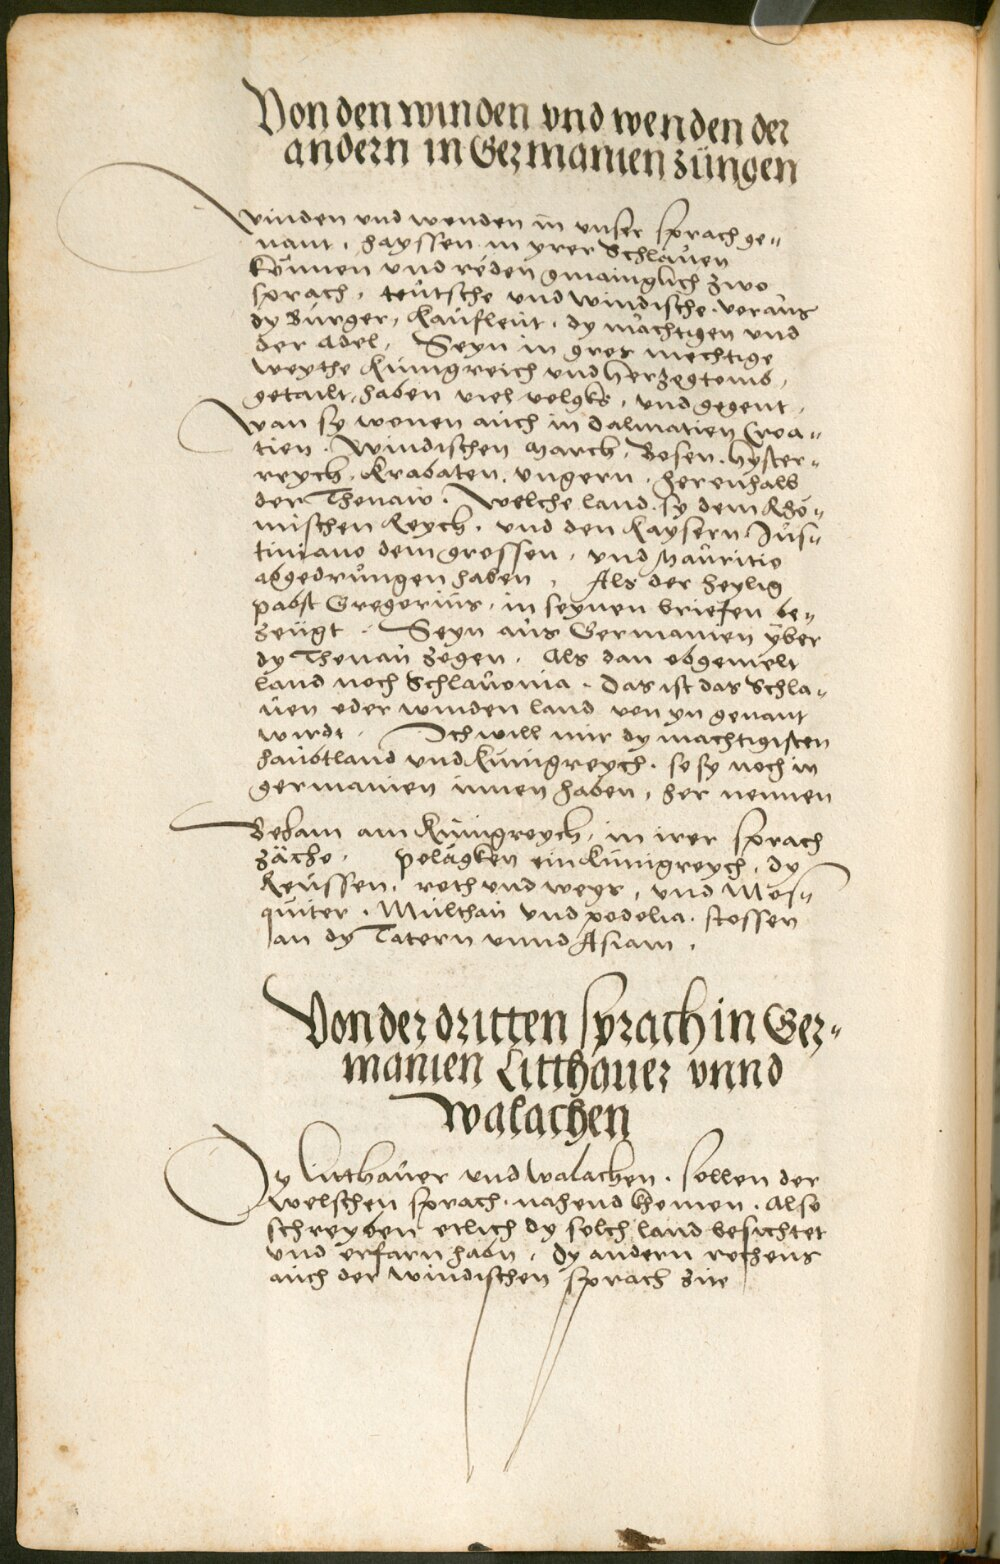 Von den winden vnd wenden der
andern in Germanien züngen
Winden vnd wenden in vnser sprach ge„
nant, hayssen in yrer Schlauen
können vnd reden gmainglich zwo
sprach, teutsche vnd windische. voraus
dy Bürger, Kaufleut. dy mächtigen vnd
der adel, Seyn in gros mechtige
weythe Künigreich vnd Herzogtomb,
getailt, haben viel volgks, vnd gegent,
Wan sy wonen auch in dalmatien Croa„
tien. Windischen march. Bosen. Hyster„
reych. Krabaten. vngern. herenhalb
der Thonaw. Welche land sy dem Rhö„
mischen Reych. vnd den Kaysern Jus„
tiniano dem grossen, vnd Mauritio
abgedrungen haben, Als der heylig
pabst Gregorius, in seynen briefen be„
zeugt. Seyn aus Germanien yber
dy Thonau zogen. Als dan obgemelt
land noch Schlauonia. Das ist das Schla„
uen oder winden land von yn genant
wirdt. Ich will nur dy mächtigisten
haubtland vnd Künigreych. so sy noch in
germanien innen haben, her nennen
Beham am Künigreych, in irer sprach
zäche. Poläghen ein Künigreych, dy
Reussen, roth vnd weys, vnd Mos„
quiter. Multhau vnd podolia. stossen
an dy Tatern vnnd Asiam.
Von der dritten sprach in Ger„
manien Litthauer vnnd
walachen
Dy litthauer vnd walachen. sollen der
welschen sprach. nahend khomen. Also
schreyben etlich dy solch land besichtet
vnd erfarn habn, dy andern rechens
auch der windischen sprach zue